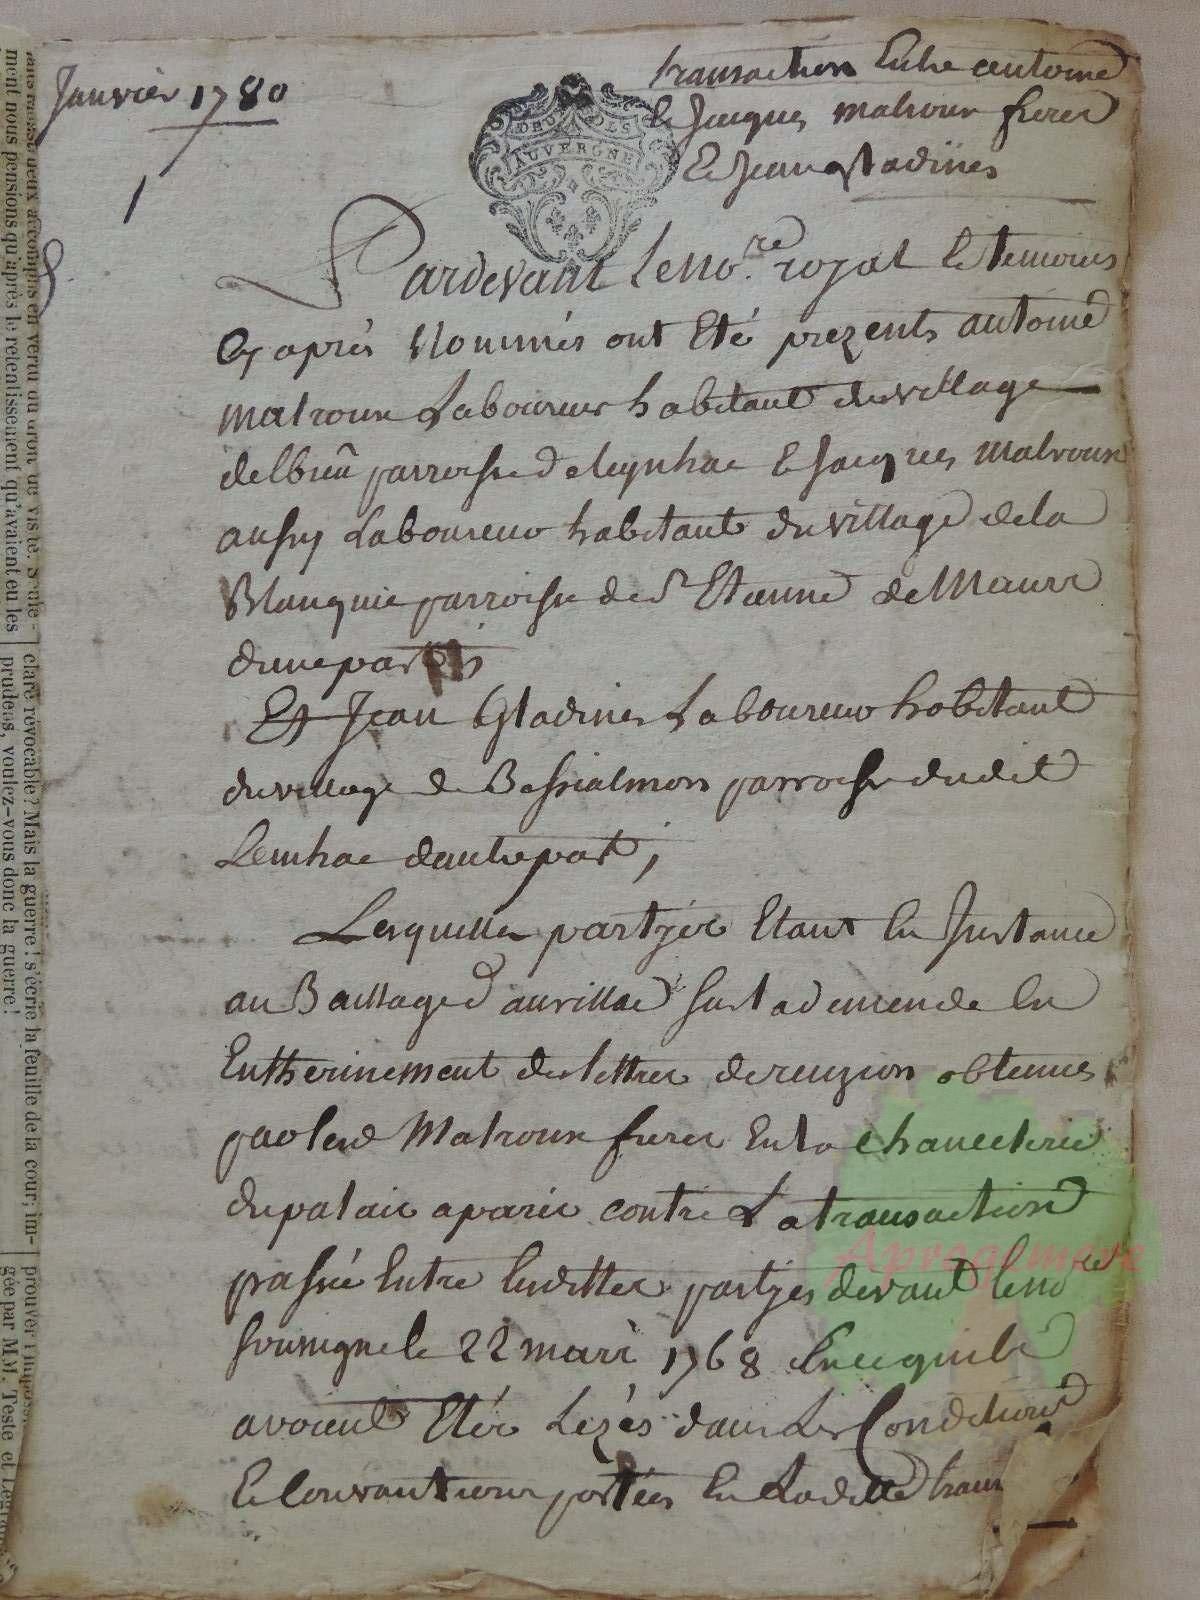 Janvier 1780
1
transaction Entre antoine
& Jacques malroux freres
Et Jean gladines
DROITS DES
AUVERGNE
Pardevant le no.re royal & temoins
Cy après Nommés ont Eté prezents antoine
malroux Laboureur habitant du village
parroisse de leynhac & Jacques malroux
aussy Laboureur habitant du village de la
Blanquie parroisse de St Etienne de Maurs
dune part
Et Jean Gladines Laboureur habitant
du village de Bessialmon parroisse dudit
Leinhac dautre part ;
Lesquelles partyes Etant En Instance
au Baillage d'aurillac sur la demende En
Entherinement des lettres de obtenues
par lesd Malroux freres En la chancelerie
du palais a paris contre La transaction
passée Entre lesdittes partyes devant le no.re
soussigné le 22 mars 1768 En ce quils
avoient Etés Lezés dans Les Conditions
Et Conventions portées En Laditte trans
Aprogemere
ment nous pensions qu'après le retentissement qu'avaient eu les
claré révocable? Mais la guerre! s'écrie la feuille de la cour; im-
prudens, voulez-vous donc la guerre!
gée par MM. Teste et